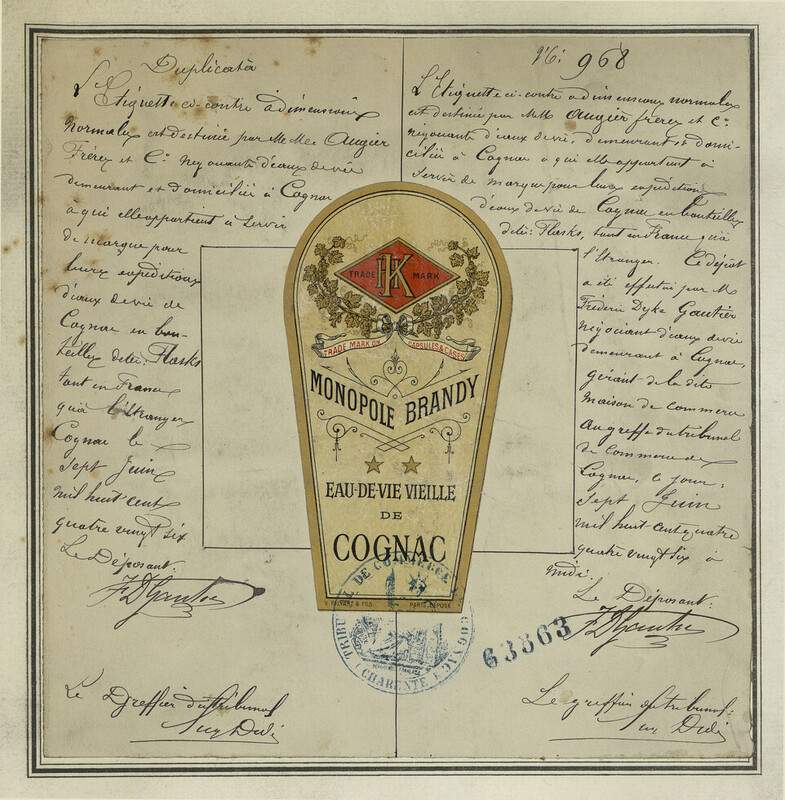 Duplicata
L'Etiquette ci-contre à dimensions
normales est destinée par MM Augier
Frères et Cie négociants d'eaux de vie
demeurant et domiciliés à Cognac
a qui elle appartient à servir
de marque pour
leurs expéditions
d'eaux de vie de
Cognac en bou-
teilles dites: Flasks
tant en France
qu'à l'étranger
Cognac le
sept Juin
mil huit cent
quatre vingt six
Le Déposant:
F D Gautier
Le Greffier du tribunal
No: 968
L'Etiquette ci-contre a dimensions normales
est destinée par MM Augier frères et Cie
négociants d'eaux de vie, demeurant et domi-
ciliés à Cognac à qui elle appartient à
servir de marque pour leurs expéditions
d'eaux de vie de Cognac en bouteilles
dites: Flasks, tant en France qu'à
l'étranger. Ce dépôt
a été effectué par M
Frédéric Dyke Gautier
négociant d'eaux de vie
demeurant à Cognac,
gérant de la dite
maison de commerce
au greffe du tribunal
de commerce de
Cognac, ce jour,
sept Juin
mil huit cent quatre
quatre vingt six à
midi.
Le Déposant:
F D Gautier
Le greffier du tribunal:
HK
TRADE MARK
TRADE MARK ON CAPSULES & CASES
MONOPOLE BRANDY
EAU-DE-VIE VIEILLE
DE
COGNAC
& FILS PARIS, DÉPOSÉ
TRIBUNAL DE COMMERCE
COGNAC (CHARENTE)
63863